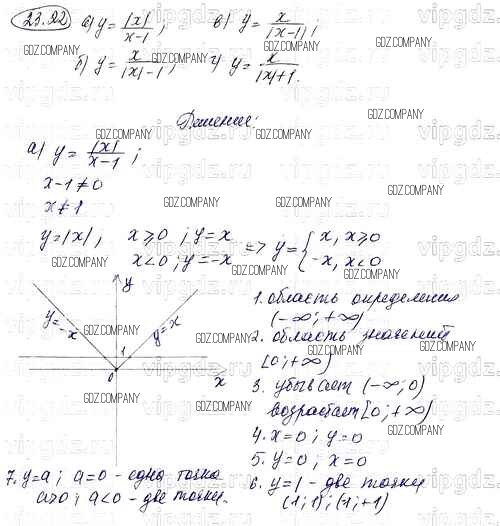 23.22 а) y = |x|/(x-1); в) y = x/|x-1|;
б) y = x/(|x|-1); г) y = x/(|x|+1).
Решение:
а) y = |x|/(x-1);
x-1≠0
x≠1
y=|x|, x≥0; y=x => y= { x, x≥0
x<0; y=-x -x, x<0
y
y=-x y=x
1
0 x
1. область определения
(-∞; +∞)
2. область значений
[0; +∞)
3. убывает (-∞; 0)
возрастает [0; +∞)
4. x=0; y=0
5. y=0, x=0
6. y=1 - две точки
(1; 1); (-1; +1)
7. y=a; a=0 - одна точка
a>0; a<0 - две точки.
GDZ.COMPANY
vipgdz.ru